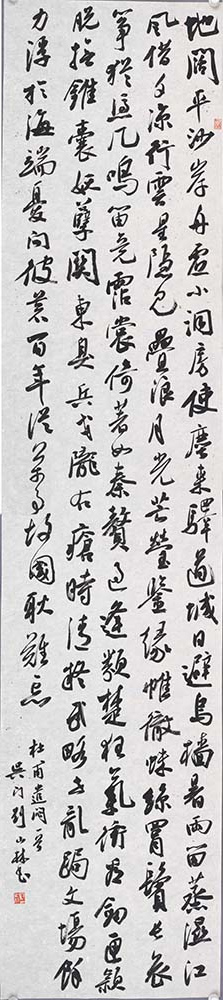 地闊平沙岸舟虛小洞房使塵來驛道城日避烏檣暑雨留蒸濕江
風借夕涼行雲星隱見疊浪月光芒螢鑒緣帷徹蛛絲罥鬢長哀
箏猶憑几鳴笛竟霑裳倚著如秦贅過逢類楚狂氣衝看劍匣穎
脫撫錐囊妖孽關東臭兵戈隴右瘡時清疑武略世亂跼文場餘
力浮於海端憂問彼蒼百年從萬事故國耿難忘
杜甫遣悶一首
吳門劉小林書